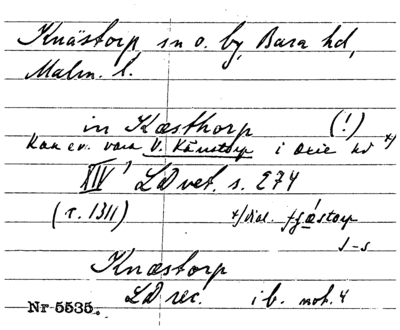 Knästorp, sn o. by, Bara hd,
Malm. l.
in Kæsthorp (!)
Kan ev. vara V. Kärrstorp i Oxie hd x)
XIV1 LDvet. s. 274
(c. 1311) x) dial. tjæstorp
J-s
Knæstorp
LD rec. ib. not. 4
Nr 5535.